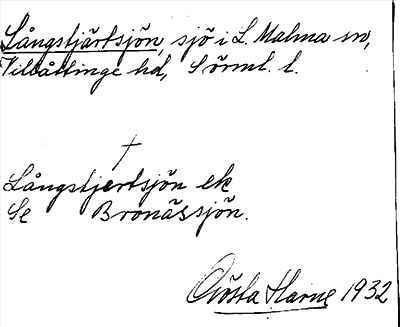 Långstjärtsjön, sjö i L. Malma sn,
Villåttinge hd, Sörml. l.
Långstjertsjön ek
Se Bronässjön.
Gösta Harne 1932